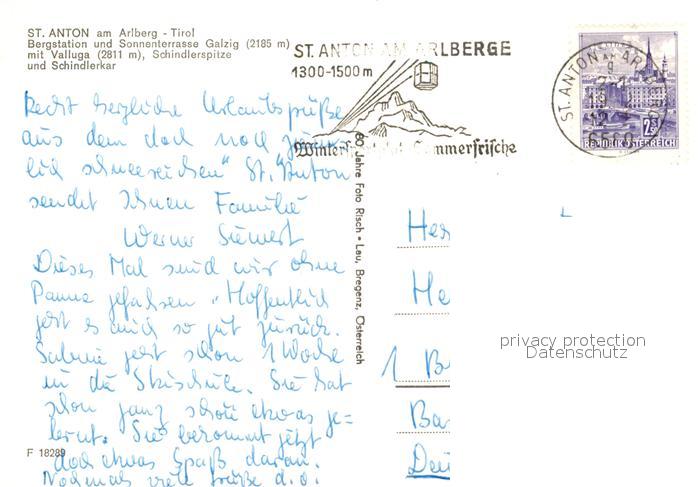 ST. ANTON am Arlberg - Tirol
Bergstation und Sonnenterrasse Galzig (2185 m)
mit Valluga (2811 m), Schindlerspitze
und Schindlerkar
ST. ANTON AM ARLBERGE
1300-1500 m
Wintersport Sommerfrische
ST. ANTON AM AR
REPUBLIK ÖSTERREICH
Recht herzliche Urlaubsgrüße
aus dem doch noch
lich schneereichen" St. Anton
sendet Ihnen Familie
Werner Siewert
Dieses Mal sind wir ohne
Panne gefahren. Hoffentlich
geht es auch so gut zurück.
Sabine geht schon 1 Woche
in die Skischule. Sie hat
schon ganz schön etwas ge=
lernt. Sie bekommt jetzt
doch etwas Spaß daran.
Nochmals viele Grüße d.o.
60 Jahre Foto Risch • Lau, Bregenz, Österreich
F 18289
Her
He
1 B
Ba
Deu
privacy protection
Datenschutz